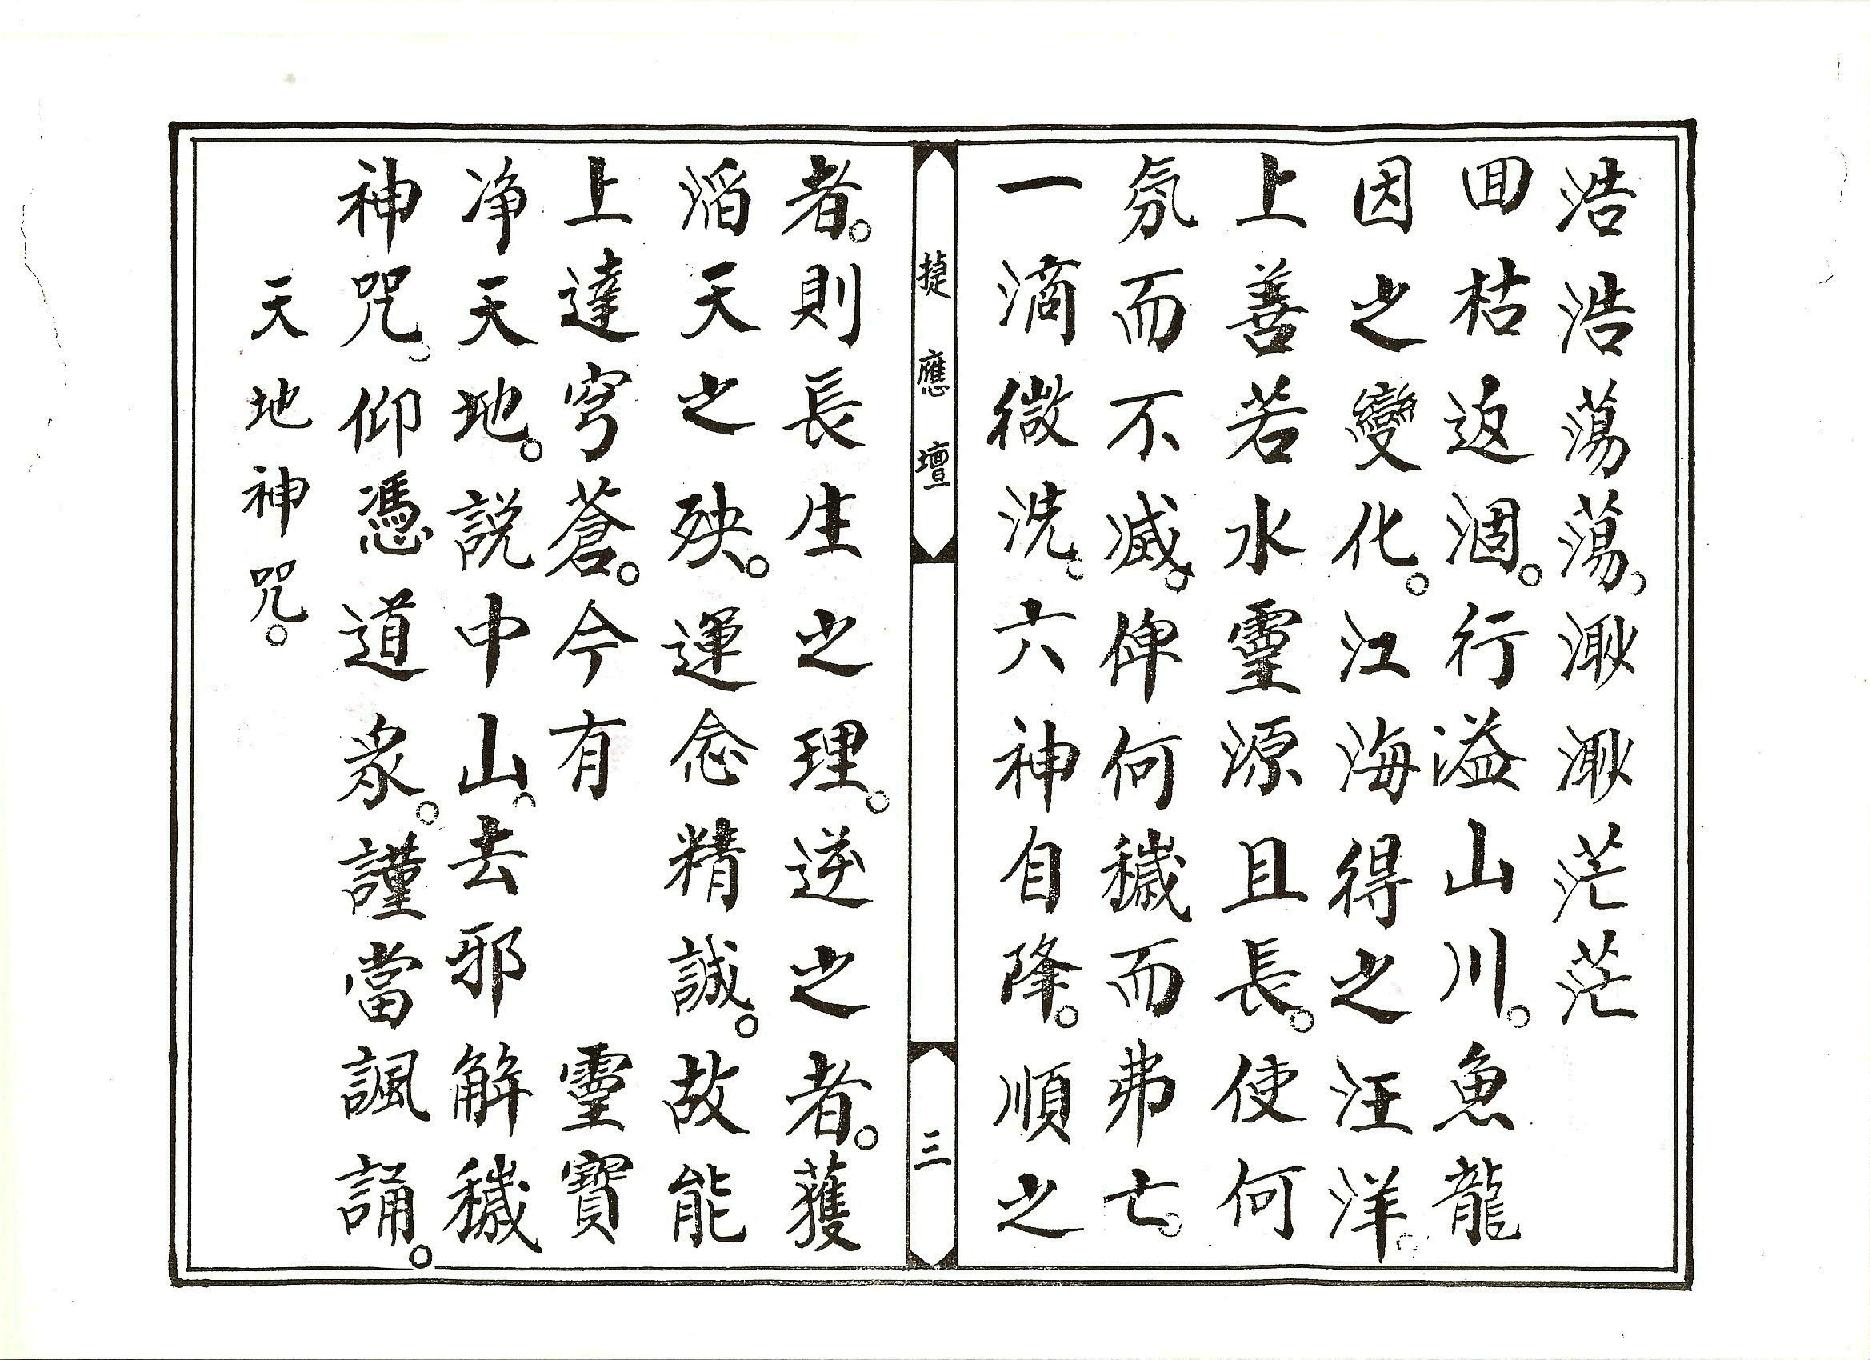 浩浩蕩蕩。溵溵茫茫
回枯返涸。行溢山川。魚龍
因之變化。江海得之汪洋。
上善若水靈源且長。使何
氛而不滅。俾何穢而弗亡。
一滴微洗。六神自降。順之
捷應壇
三
者。則長生之理。逆之者。獲
滔天之殃。運念精誠。故能
上達穹蒼。今有　靈寶
净天地。説中山。去邪解穢
神咒。仰憑道衆。謹當諷誦。
天地神咒。